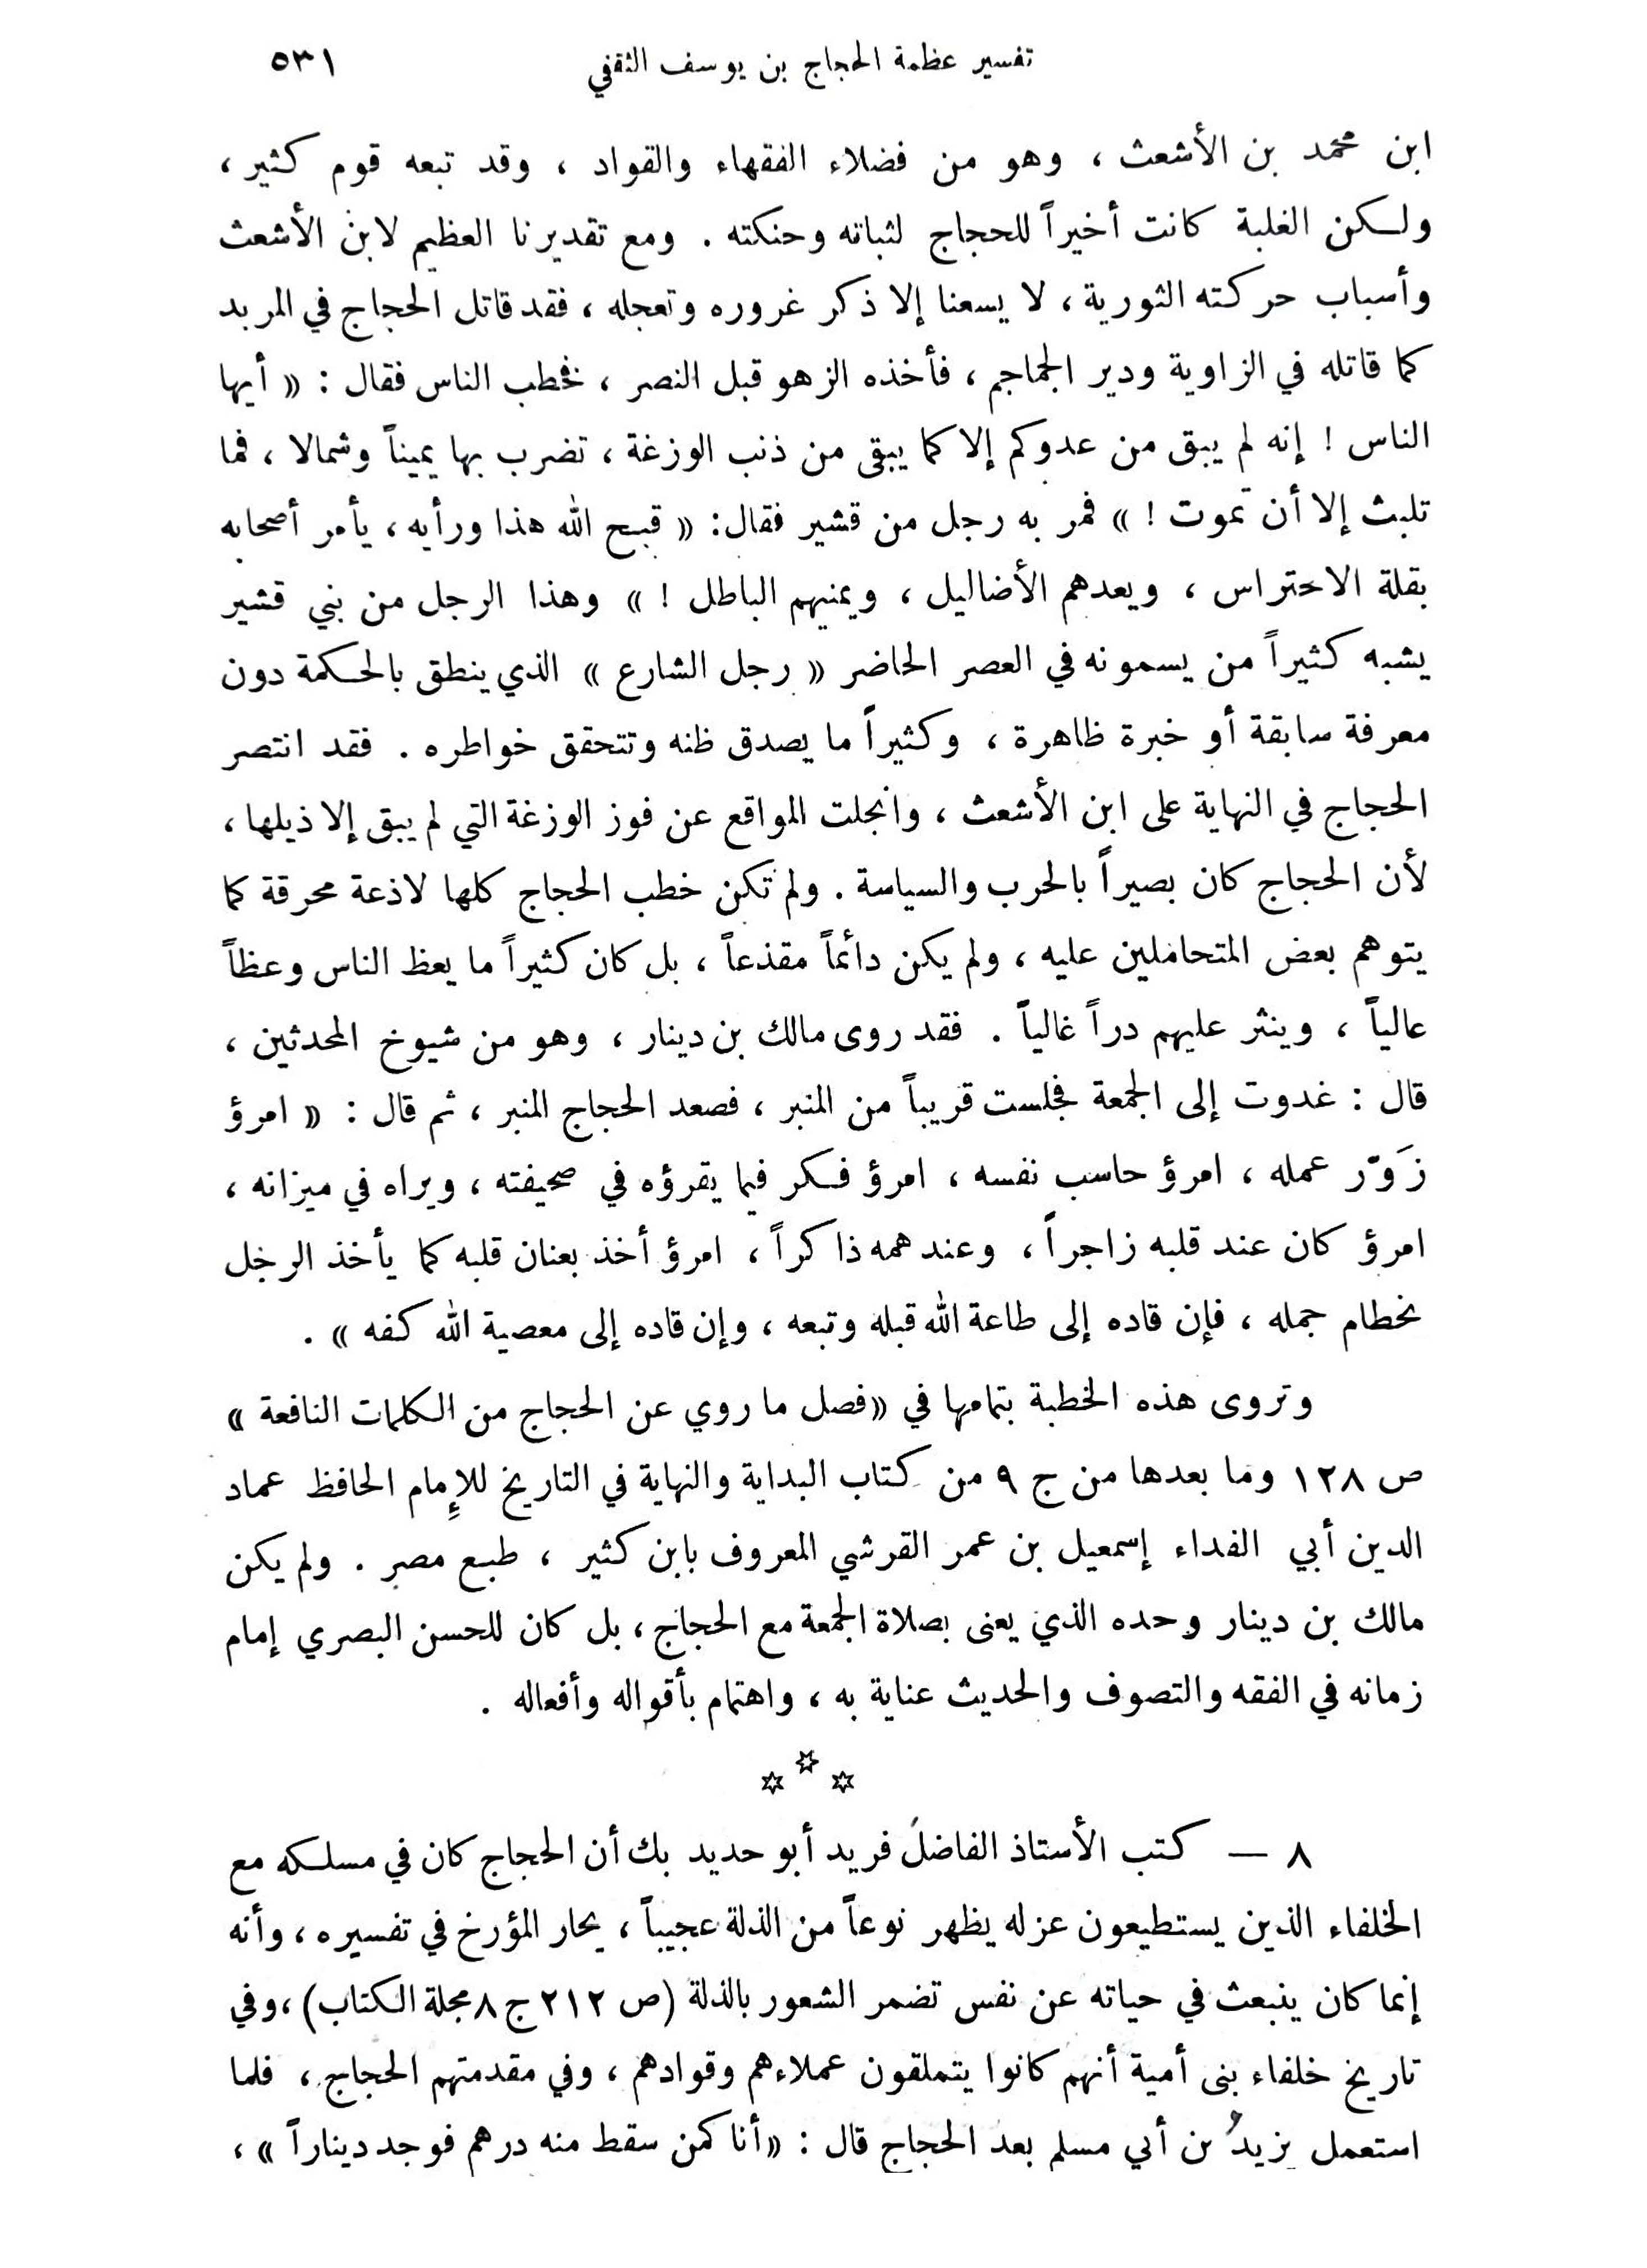 تفسير عظمة الحجاج بن يوسف الثقفي ٥٣١
ابن محمد بن الأشعث ، وهو من فضلاء الفقهاء والقواد ، وقد تبعه قوم كثير ،
ولكن الغلبة كانت أخيراً للحجاج لثباته وحنكته . ومع تقديرنا العظيم لابن الأشعث
وأسباب حركته الثورية ، لا يسعنا إلا ذكر غروره وتعجله ، فقد قاتل الحجاج في المربد
كما قاتله في الزاوية ودير الجماجم ، فأخذه الزهو قبل النصر ، فخطب الناس فقال : « أيها
الناس ! إنه لم يبق من عدوكم إلا كما يبقى من ذنب الوزغة ، تضرب بها يميناً وشمالا ، فما
تلبث إلا أن تموت ! » فمر به رجل من قشير فقال : « قبح الله هذا ورأيه ، يأمر أصحابه
بقلة الاحتراس ، ويعدهم الأضاليل ، ويمنيهم الباطل ! » وهذا الرجل من بني قشير
يشبه كثيراً من يسمونه في العصر الحاضر « رجل الشارع » الذي ينطق بالحكمة دون
معرفة سابقة أو خبرة ظاهرة ، وكثيراً ما يصدق ظنه وتتحقق خواطره . فقد انتصر
الحجاج في النهاية على ابن الأشعث ، وانجلت المواقع عن فوز الوزغة التي لم يبق إلا ذيلها ،
لأن الحجاج كان بصيراً بالحرب والسياسة . ولم تكن خطب الحجاج كلها لاذعة محرقة كما
يتوهم بعض المتحاملين عليه ، ولم يكن دائماً مقذعاً ، بل كان كثيراً ما يعظ الناس وعظاً
عالياً ، وينثر عليهم دراً غالياً . فقد روى مالك بن دينار ، وهو من شيوخ المحدثين ،
قال : غدوت إلى الجمعة فجلست قريباً من المنبر ، فصعد الحجاج المنبر ، ثم قال : « امرؤ
زَوّر عمله ، امرؤ حاسب نفسه ، امرؤ فكر فيما يقرؤه في صحيفته ، ويراه في ميزانه ،
امرؤ كان عند قلبه زاجراً ، وعند همه ذاكراً ، امرؤ أخذ بعنان قلبه كما يأخذ الرجل
بخطام جمله ، فإن قاده إلى طاعة الله قبله وتبعه ، وإن قاده إلى معصية الله كفه » .
وتروى هذه الخطبة بتمامها في «فصل ما روي عن الحجاج من الكلمات النافعة »
ص ١٢٨ وما بعدها من ج ٩ من كتاب البداية والنهاية في التاريخ للإمام الحافظ عماد
الدين أبي الفداء إسمعيل بن عمر القرشي المعروف بابن كثير ، طبع مصر . ولم يكن
مالك بن دينار وحده الذي يعنى بصلاة الجمعة مع الحجاج ، بل كان للحسن البصري إمام
زمانه في الفقه والتصوف والحديث عناية به ، واهتمام بأقواله وأفعاله .
☆ ☆ ☆
٨ — كتب الأستاذ الفاضل فريد أبو حديد بك أن الحجاج كان في مسلكه مع
الخلفاء الذين يستطيعون عزله يظهر نوعاً من الذلة عجيباً ، يحار المؤرخ في تفسيره ، وأنه
إنما كان ينبعث في حياته عن نفس تضمر الشعور بالذلة (ص ٢١٢ ج ٨ مجلة الكتاب) ، وفي
تاريخ خلفاء بنى أمية أنهم كانوا يتملقون عملاءهم وقوادهم ، وفي مقدمتهم الحجاج ، فلما
استعمل يزيدُ بن أبي مسلم بعد الحجاج قال : «أنا كمن سقط منه درهم فوجد ديناراً » ،